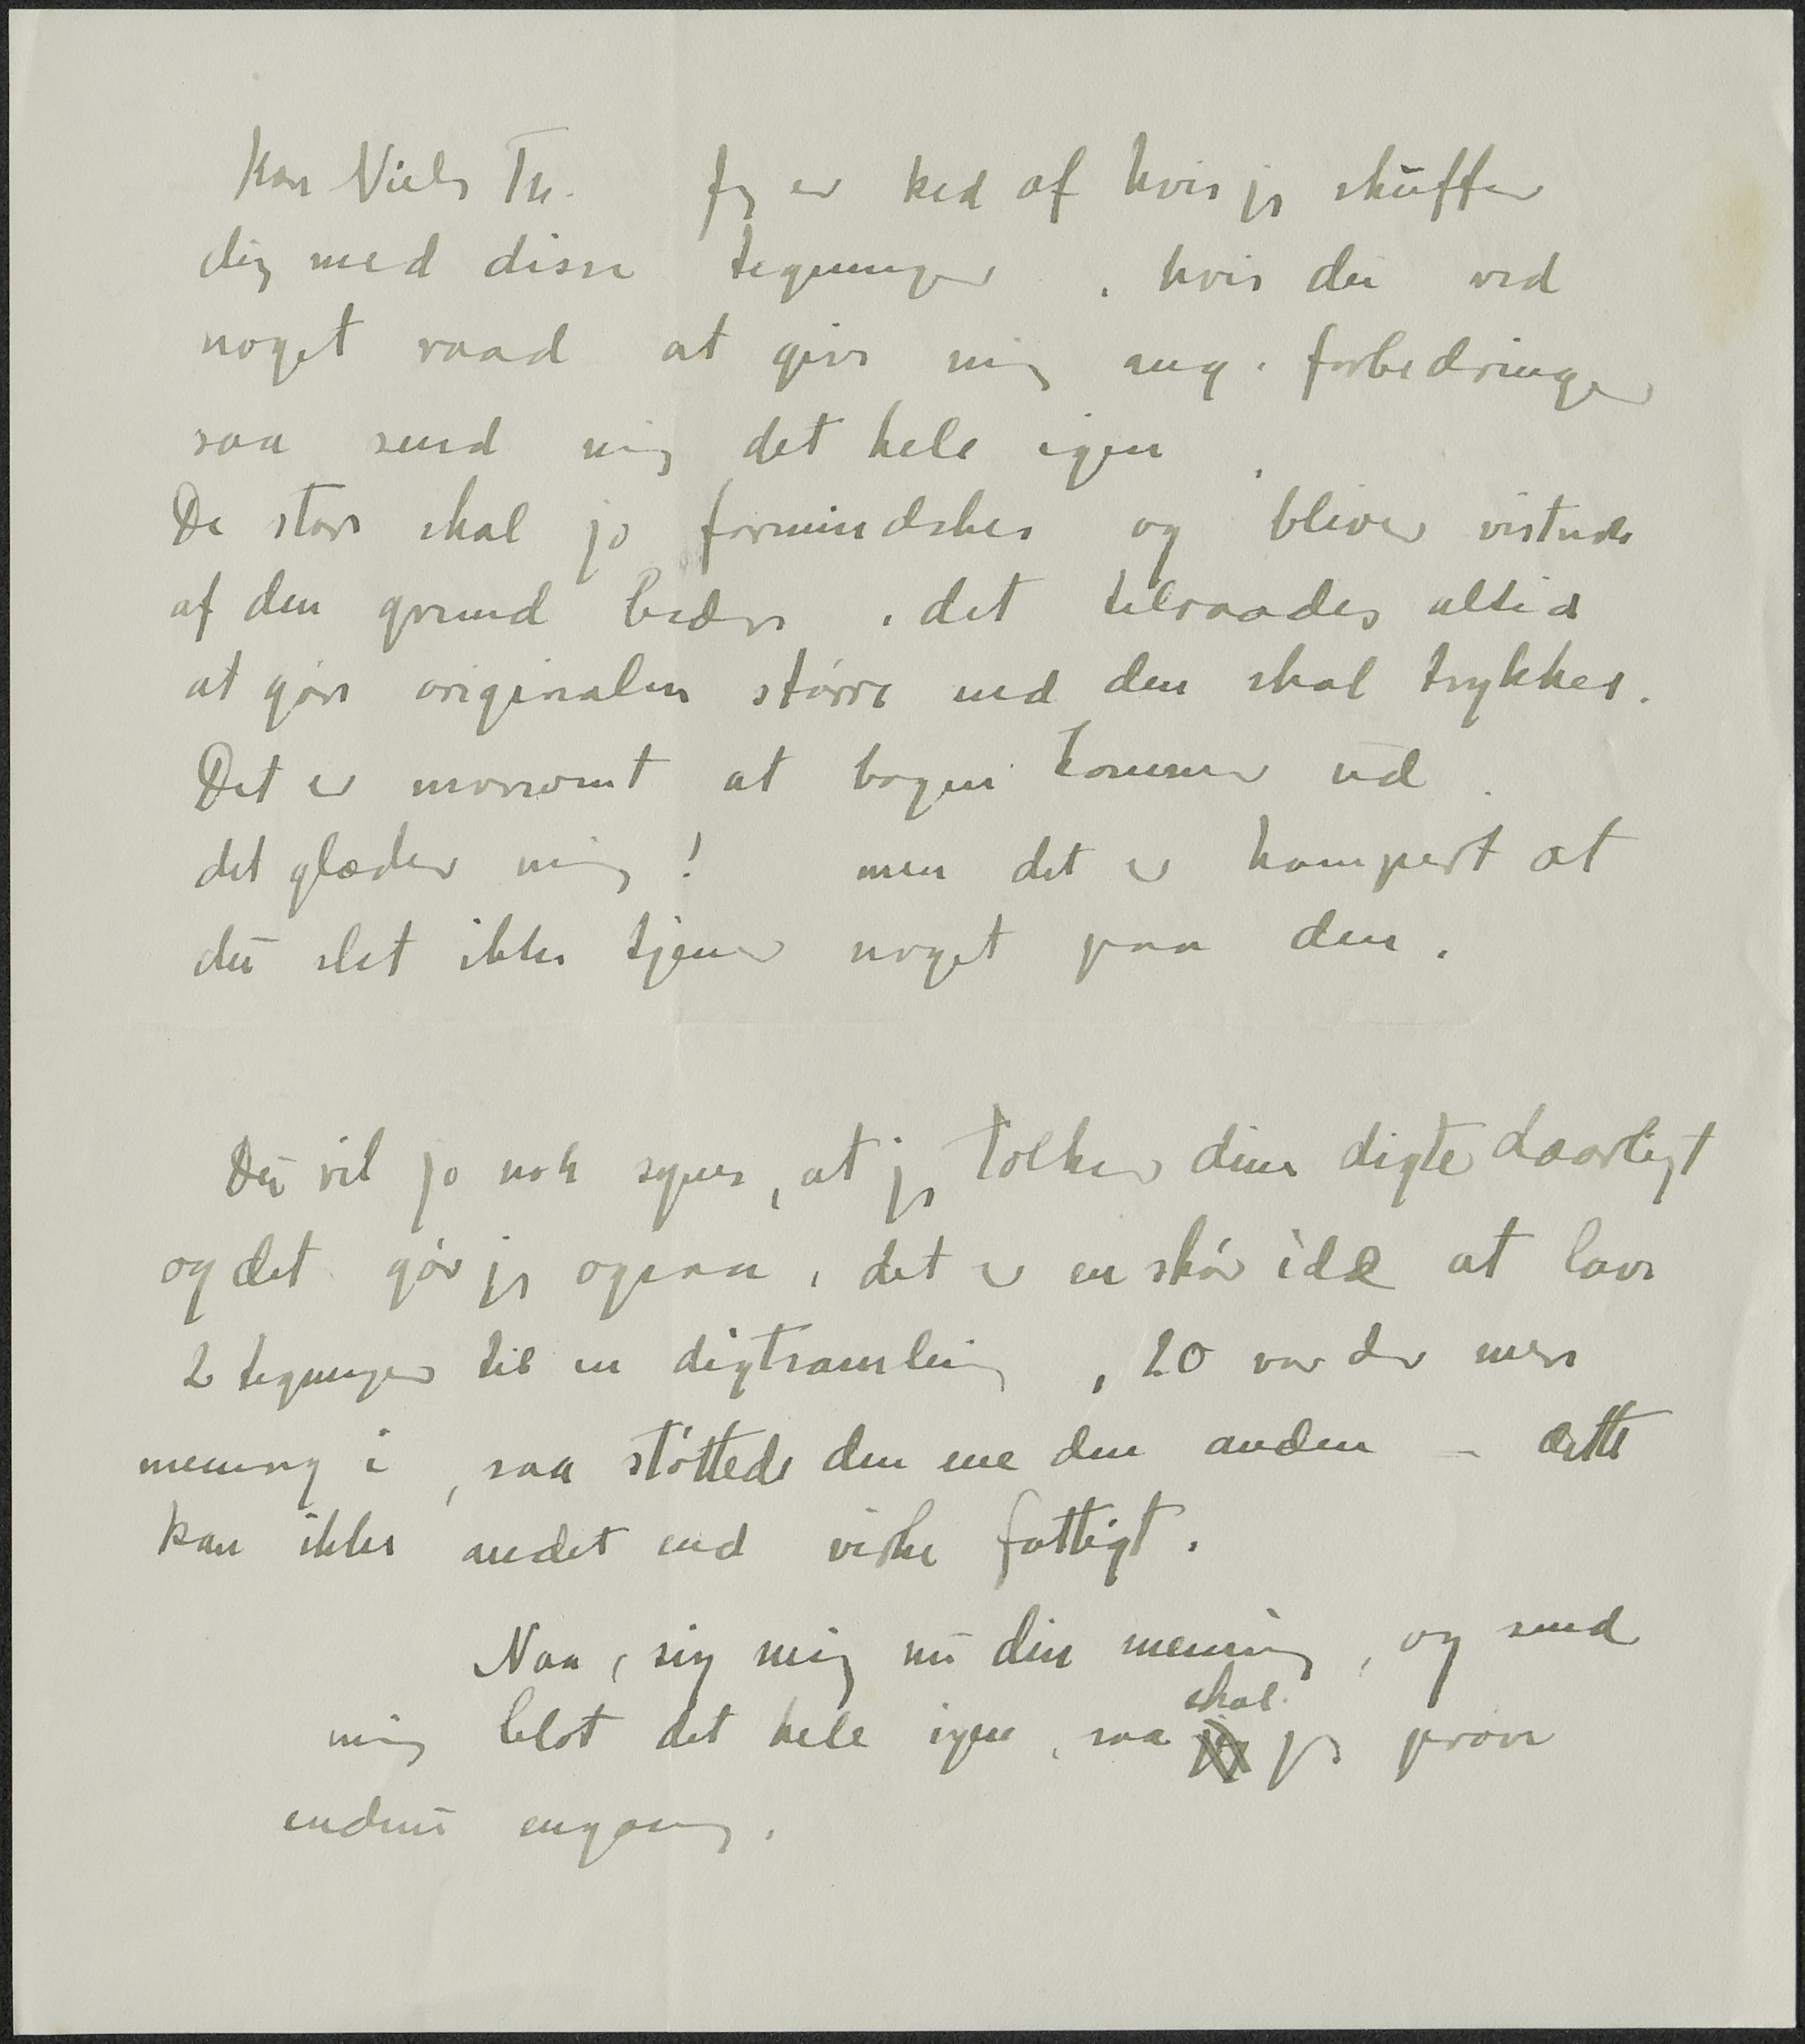 Kære Niels Th. Jeg er ked af hvis jeg skuffer
dig med disse tegninger, hvis du ved
noget raad at give mig ang. forbedringer
saa send mig det hele igen.
De store skal jo formindskes og bliver vistnok
af den grund bedre, det tilraades altid
at gøre originalen større end den skal trykkes.
Det er morsomt at bogen kommer ud.
det glæder mig! men det er kampert at
du slet ikke tjener noget paa den.
Du vil jo nok synes, at jeg tolker dine digte daarligt
og det gør jeg ogsaa, det er en skør idé at lave
2 tegninger til en digtsamling, 20 var der mere
mening i, saa støttede den ene den anden – dette
kan ikke andet end virke fattigt.
Naa, sig mig nu din mening, og send
mig blot det hele igen, saa skal jeg prøve
endnu engang.